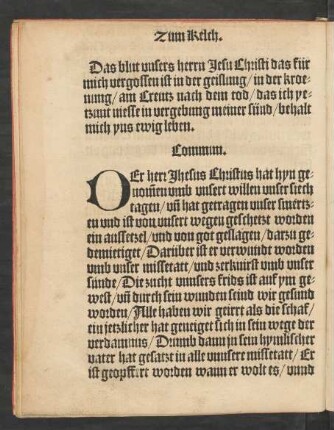 Zum Kelch.
Das blut vnsers herrn Jesu Christi das für
mich vergossen ist in der geislung / in der kroe-
nung / am Creutz nach dem tod / das ich ye-
tzunt niesse in vergebung meiner sünd / behalt
mich yns ewig leben.
Commun.
DEr herr Jhesus Christus hat hyn ge-
nom̄en vmb vnsert willen vnser siech
tagen / vn̄ hat getragen vnser smertz-
en vnd ist von vnsert wegen geschetzt worden
ein aussetzel / vnd von got geslagen / darzu ge-
demietiget / Darüber ist er verwundt worden
vmb vnser missetatt / vnd zerknirst vmb vnser
sünde / Die zucht vnnsers frids ist auf ym ge-
west / vn̄ durch sein wunden seind wir gesund
worden / Alle haben wir geirrt als die schaf /
ein jetzlicher hat geneiget sich in sein wege der
verdamnus / Drumb dann jn sein hymlischer
vater hat gesatzt in alle vnnsere missetatt / Er
ist geopffert worden wann er wolt es / vnnd